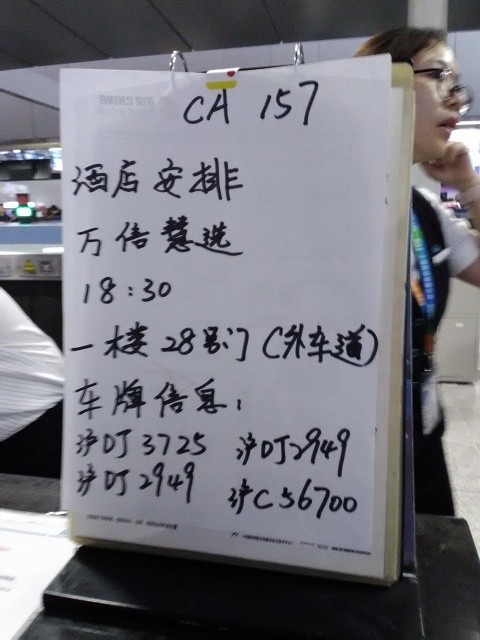 CA 157
酒店安排
万信慧选
18:30
一楼28号门(外车道)
车牌信息:
沪DJ3725 沪DJ2949
沪DJ2949 沪C56700